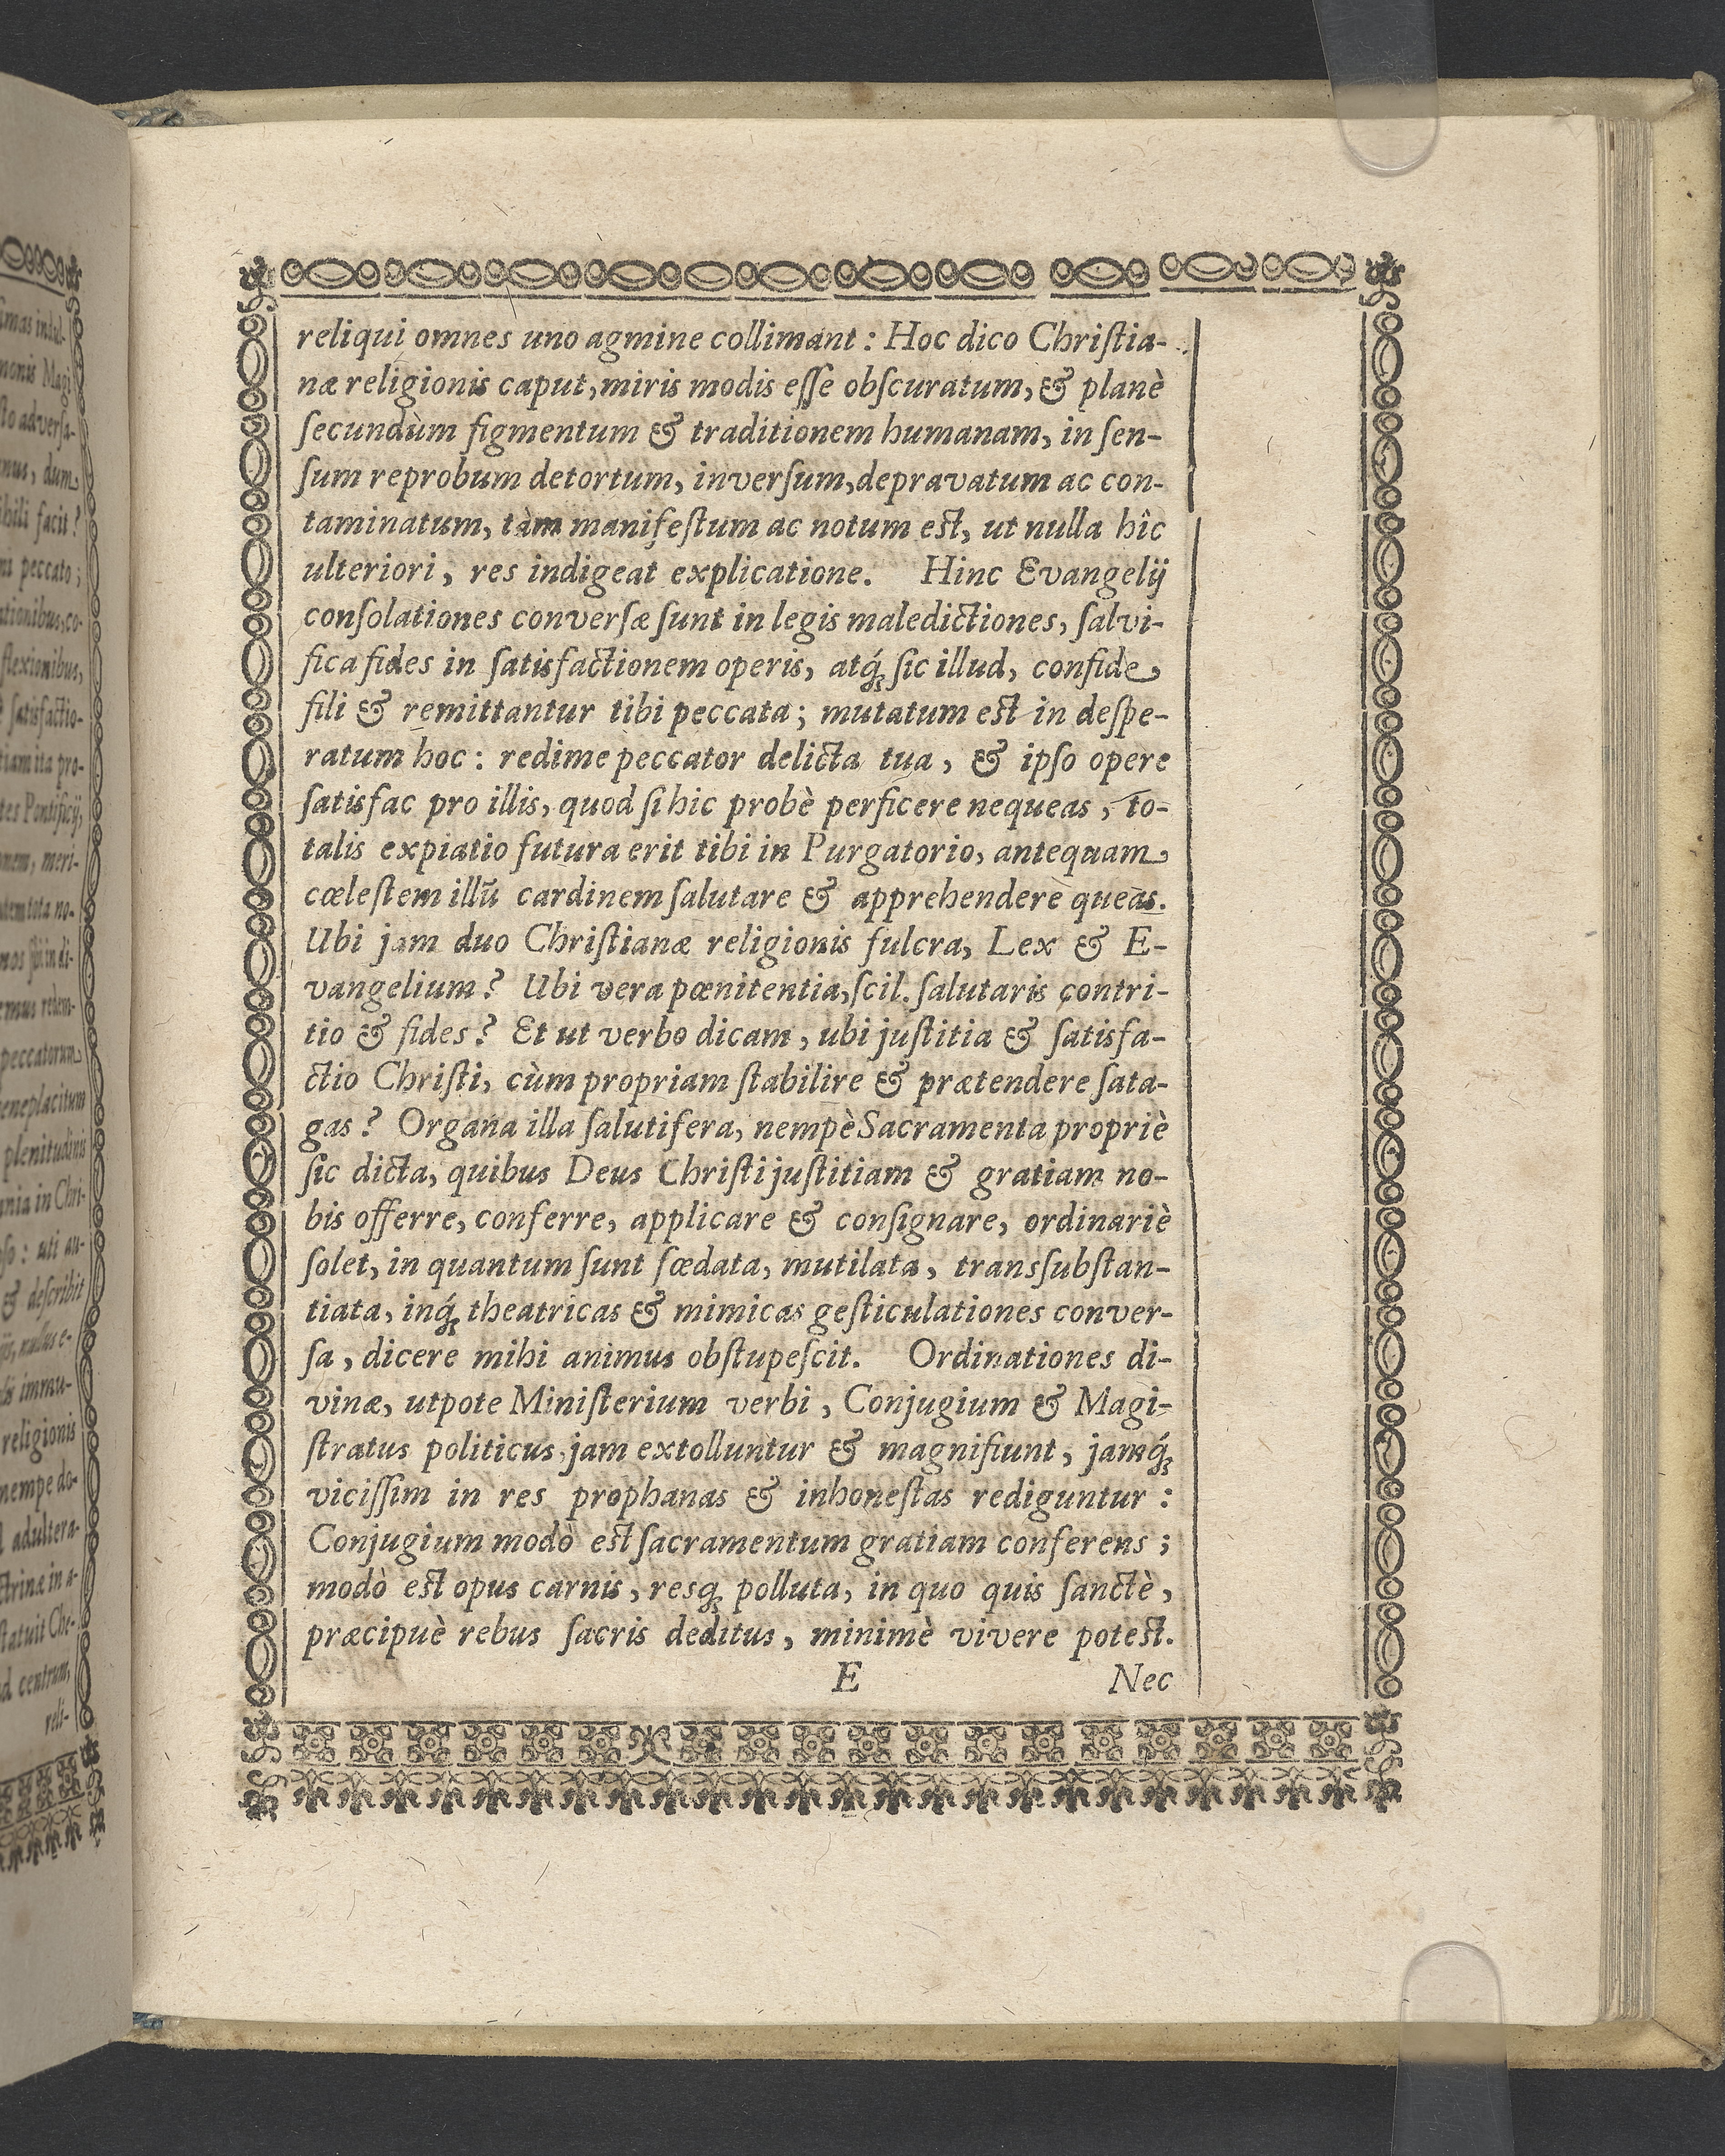 reliqui omnes uno agmine collimant : Hoc dico Chriſtia-
næ religionis caput, miris modis eſſe obſcuratum, & planè
ſecundùm figmentum & traditionem humanam, in ſen-
ſum reprobum detortum, inverſum, depravatum ac con-
taminatum, tàm manifeſtum ac notum est, ut nulla hîc
ulteriori, res indigeat explicatione. Hinc Evangelij
conſolationes converſæ ſunt in legis maledictiones, ſalvi-
fica fides in ſatisfactionem operis, atq́; ſic illud, confide
fili & remittantur tibi peccata; mutatum est in deſpe-
ratum hoc : redime peccator delicta tua, & ipſo opere
ſatisfac pro illis, quod ſi hic probè perficere nequeas, to-
talis expiatio futura erit tibi in Purgatorio, antequam
cœleſtem illũ cardinem ſalutare & apprehendere queas.
Ubi jam duo Chriſtianæ religionis fulcra, Lex & E-
vangelium? Ubi vera pœnitentia, ſcil. ſalutaris contri-
tio & fides? Et ut verbo dicam, ubi juſtitia & ſatisfa-
ctio Chriſti, cùm propriam ſtabilire & prætendere ſata-
gas? Organa illa ſalutifera, nempè Sacramenta propriè
ſic dicta, quibus Deus Chriſti juſtitiam & gratiam no-
bis offerre, conferre, applicare & conſignare, ordinariè
ſolet, in quantum ſunt fœdata, mutilata, transſubſtan-
tiata, inq́; theatricas & mimicas geſticulationes conver-
ſa, dicere mihi animus obſtupeſcit. Ordinationes di-
vinæ, utpote Miniſterium verbi, Conjugium & Magi-
ſtratus politicus, jam extolluntur & magnifiunt, jamq́;
viciſſim in res prophanas & inhoneſtas rediguntur :
Conjugium modò est ſacramentum gratiam conferens ;
modò est opus carnis, resq; polluta, in quo quis ſanctè,
præcipuè rebus ſacris deditus, minimè vivere potest.
E Nec